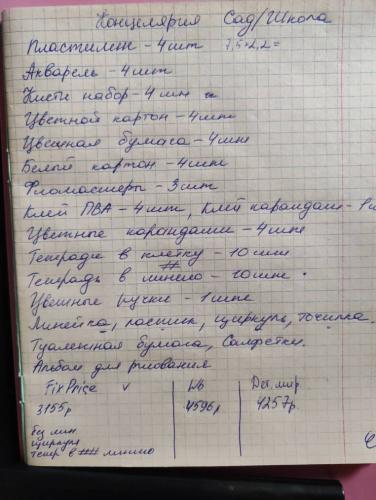 Концелярия Сад/Школа
Пластилин - 4 шт 7,5×2,2=
Акварель - 4 шт
Кисти набор - 4 шт
Цветной картон - 4 шт
Цветная бумага - 4 шт
Белый картон - 4 шт
Фломастеры - 3 шт
Клей ПВА - 4 шт, Клей карандаш - 1
Цветные карандаши - 4 шт
Тетради в клетку - 10 шт
Тетрадь в линию - 10 шт
Цветные ручки - 1 шт
Линейка, ластик, циркуль, точилка.
Туалетная бумага, Салфетки.
Альбом для рисования
FixPrice v Wb Дет. мир.
3155р 4596р 4257р.
без лин
циркуля
тетр в линию